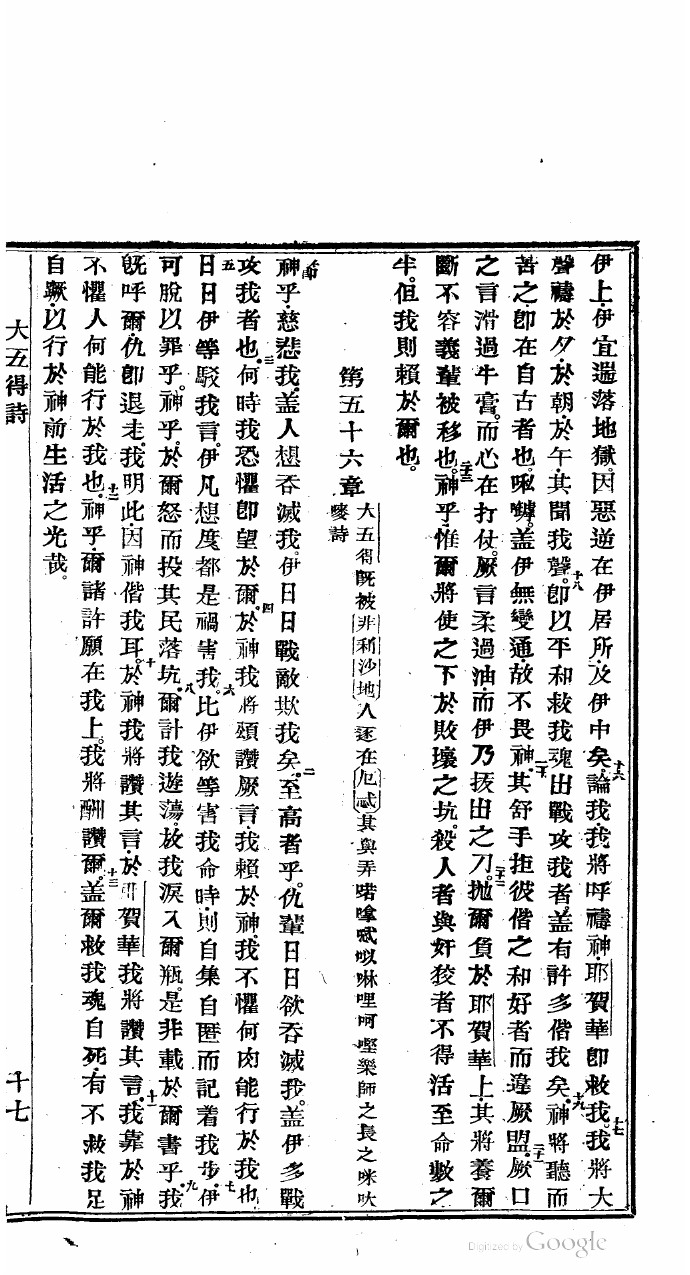 伊上。伊宜遄落地獄。因惡逆在伊居所。及伊中矣。十六論我。我將呼禱神。耶賀華卽救我。十七我將大
聲禱於夕。於朝於午。其聞我聲。十八卽以平和救我魂出戰攻我者。蓋有許多偕我矣。十九神將聽而
苦之。卽在自古者也。㗫𡀔。蓋伊無變通。故不畏神。二十其舒手拒彼偕之和好者而違厥盟。二十一厥口
之言滑過牛膏。而心在打仗。厥言柔過油。而伊乃拔出之刀。二十二拋爾負於耶賀華上。其將養爾
斷不容義輩被移也。二十三神乎。惟爾將使之下於敗壞之坑。殺人者與奸狡者不得活至命數之
半。但我則賴於爾也。
第五十六章
大五得旣被非利沙地人逐在厄忒其與弄喏𠹌唬㕥啉哩呵㗴樂師之長之咪吠
嘜詩
節一神乎。慈悲我。蓋人想吞滅我。伊日日戰敵欺我矣。二至高者乎。仇輩日日欲吞滅我。蓋伊多戰
攻我者也。三何時我恐懼卽望於爾。四於神我將頌讚厥言。我賴於神。我不懼何肉能行於我也。
五日日伊等駁我言。伊凡想度都是禍害我。六比伊欲等害我命時。則自集自匿而記着我步。七伊
可脫以罪乎。神乎。於爾怒而投其民落坑。八爾計我遊蕩。放我淚入爾瓶。是非載於爾書乎。九我
旣呼爾。仇卽退走。我明此。因神偕我耳。十於神我將讚其言。於耶賀華我將讚其言。十一我靠於神
不懼人何能行於我也。十二神乎。爾諸許願在我上。我將酬讚爾。十三蓋爾救我魂自死。有不救我足
自蹶。以行於神前生活之光哉。
大五得詩
十七
Digitized by Google